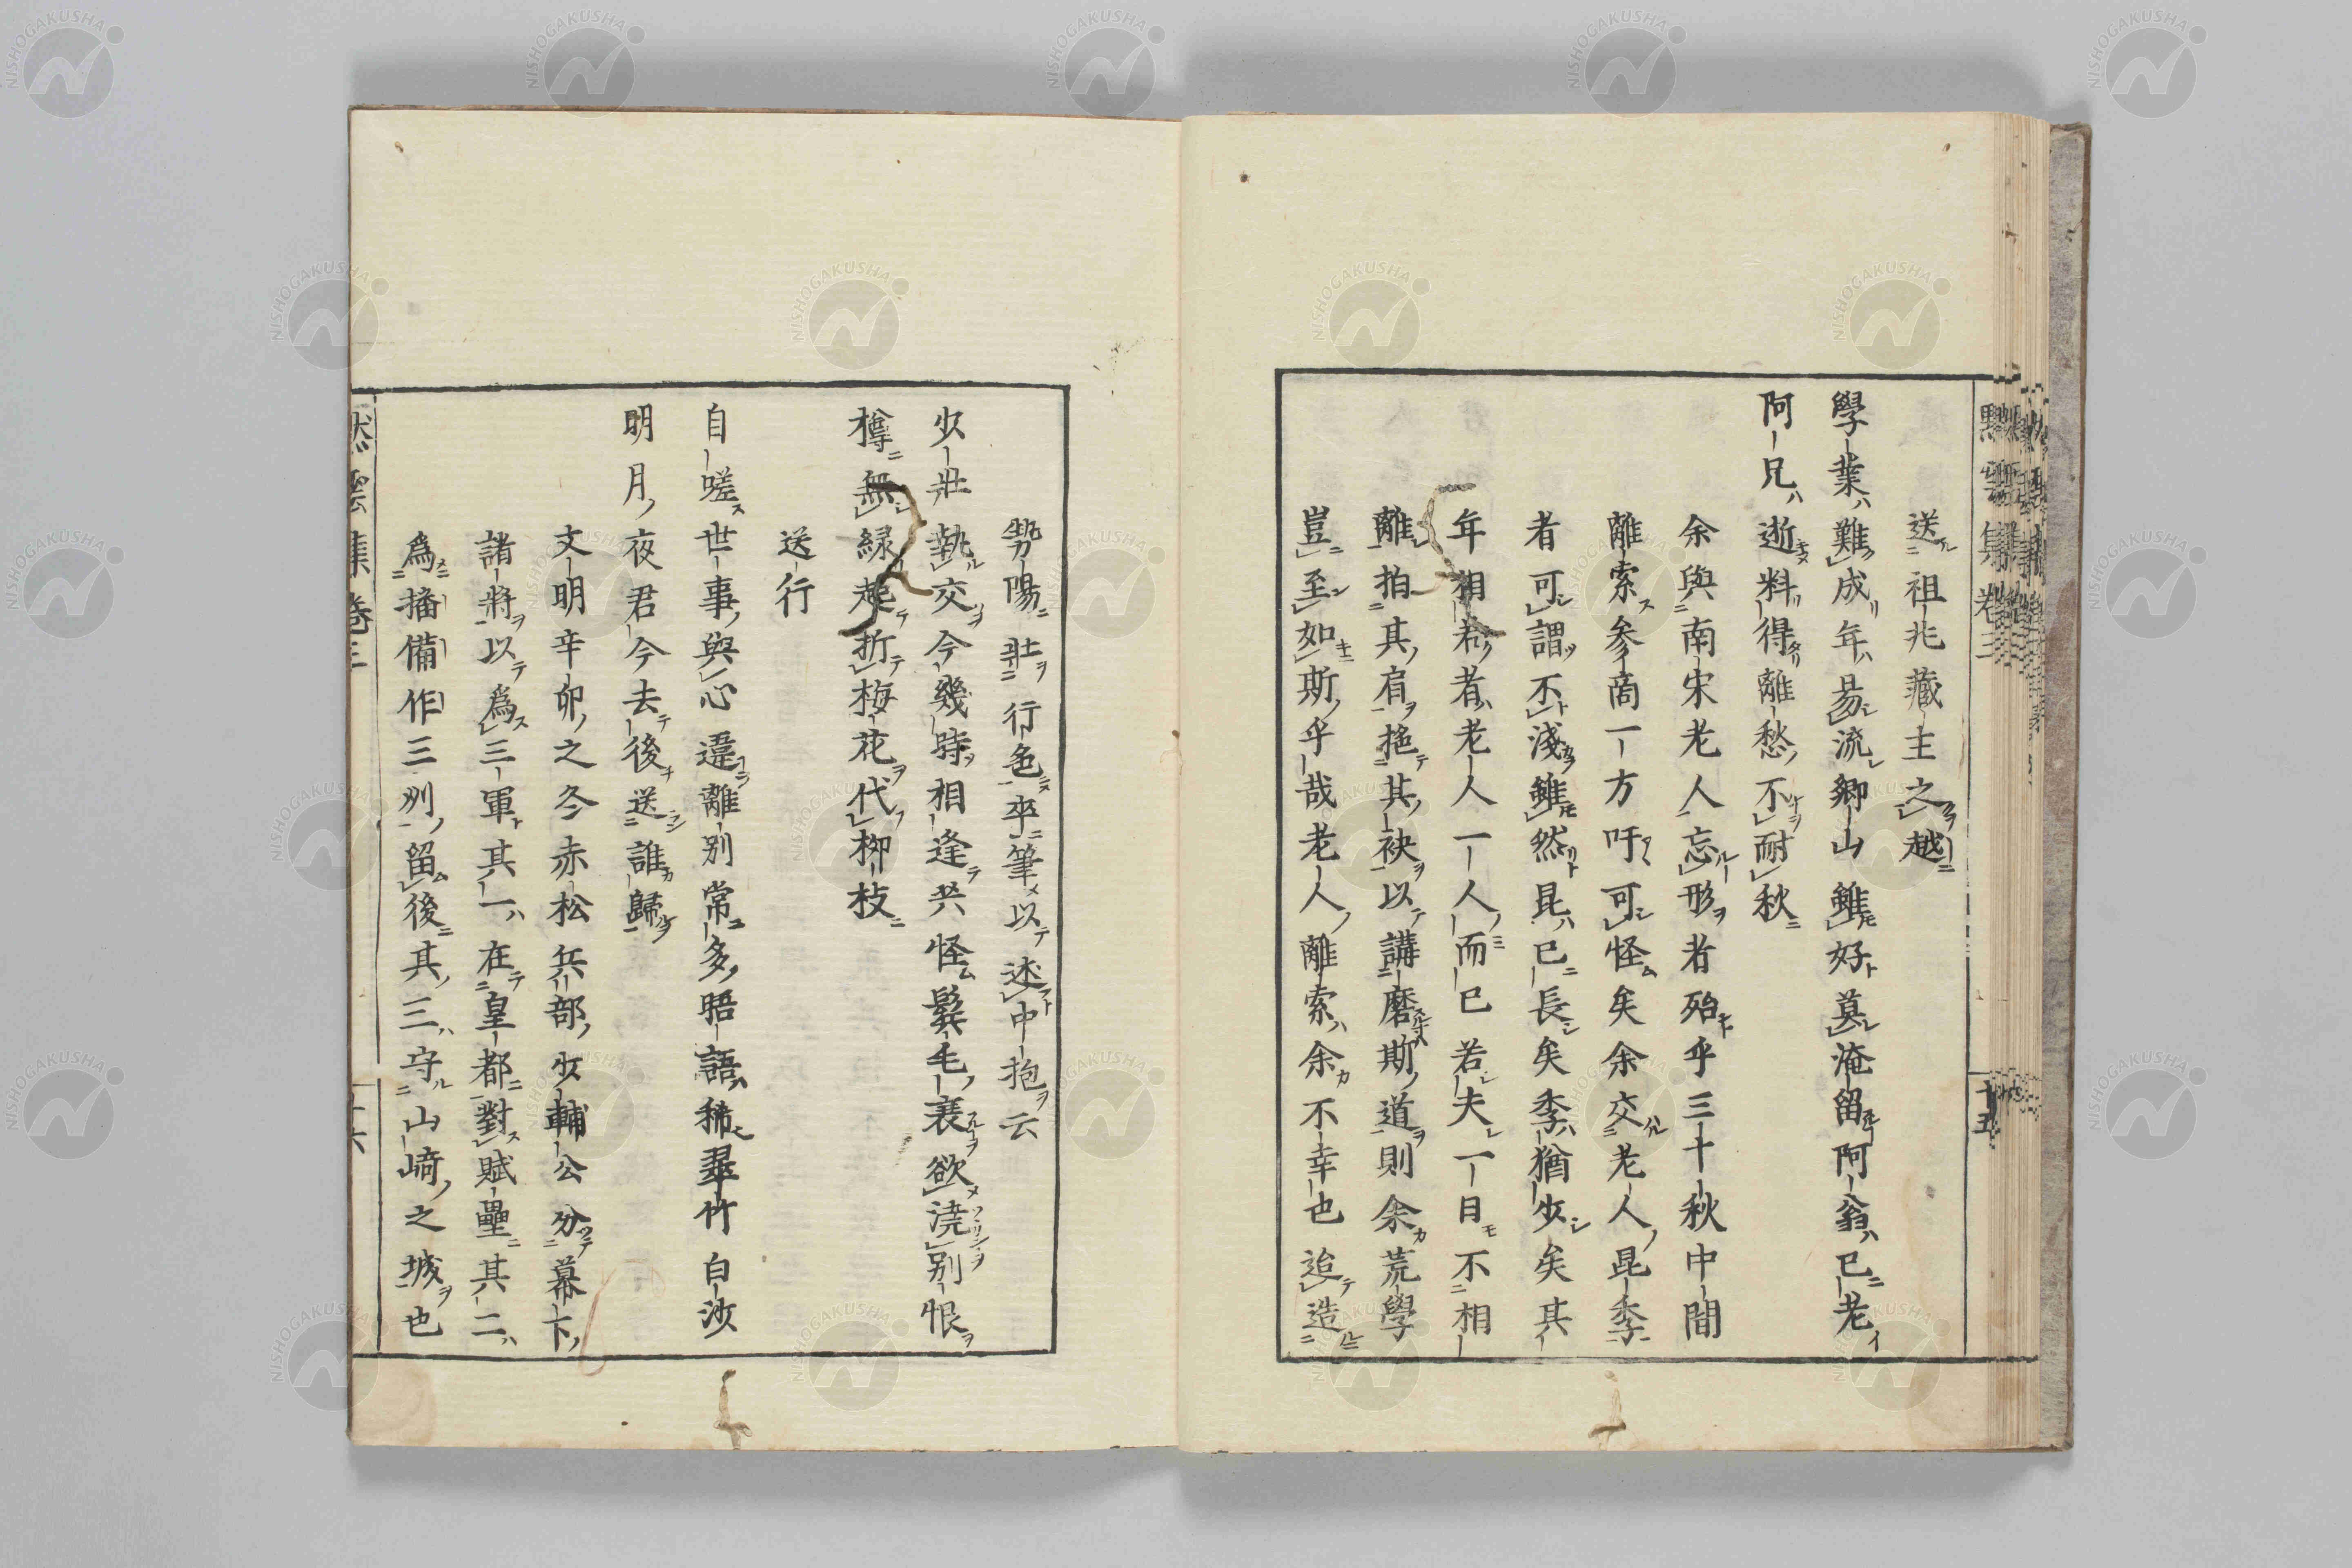 送祖兆藏主之越
學業難成年易流鄉山雖好莫淹留阿翁已老
阿兄逝料得離愁不耐秋
余與南宋老人忘形者殆乎三十秋中間
離索參商一方吁可怪矣余交老人昆季
者可謂不淺雖然昆已長矣季猶少矣其
年相若者老人一人而已若夫一日不相
離拍其肩挹其袂以講磨斯道則余荒學
豈至如斯乎哉老人離索余不幸也追造
勢陽壯行色卒筆以述中抱云
少壯執交今幾時相逢共怪鬂毛衰欲澆別恨
樽無綠起折梅花代柳枝
送行
自嗟世事與心違離別常多晤語稀翠竹白沙
明月夜君今去後送誰歸
文明辛卯之冬赤松兵部少輔公分幕下
諸將以為三軍其一在皇都對賊壘其二
為播備作三州留後其三守山崎之城也
默雲集卷三
十五
十六
NISHOGAKUSHA